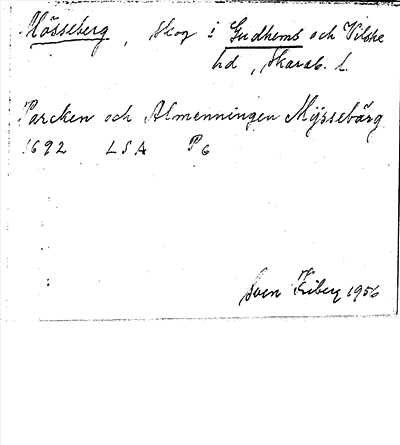 Mösseberg, Skog i Gudhems och Vilske
hd, Skarab. l.
Parcken och Almenningen Mÿssebärg
1692 LSA P6
Sven Friberg 1956